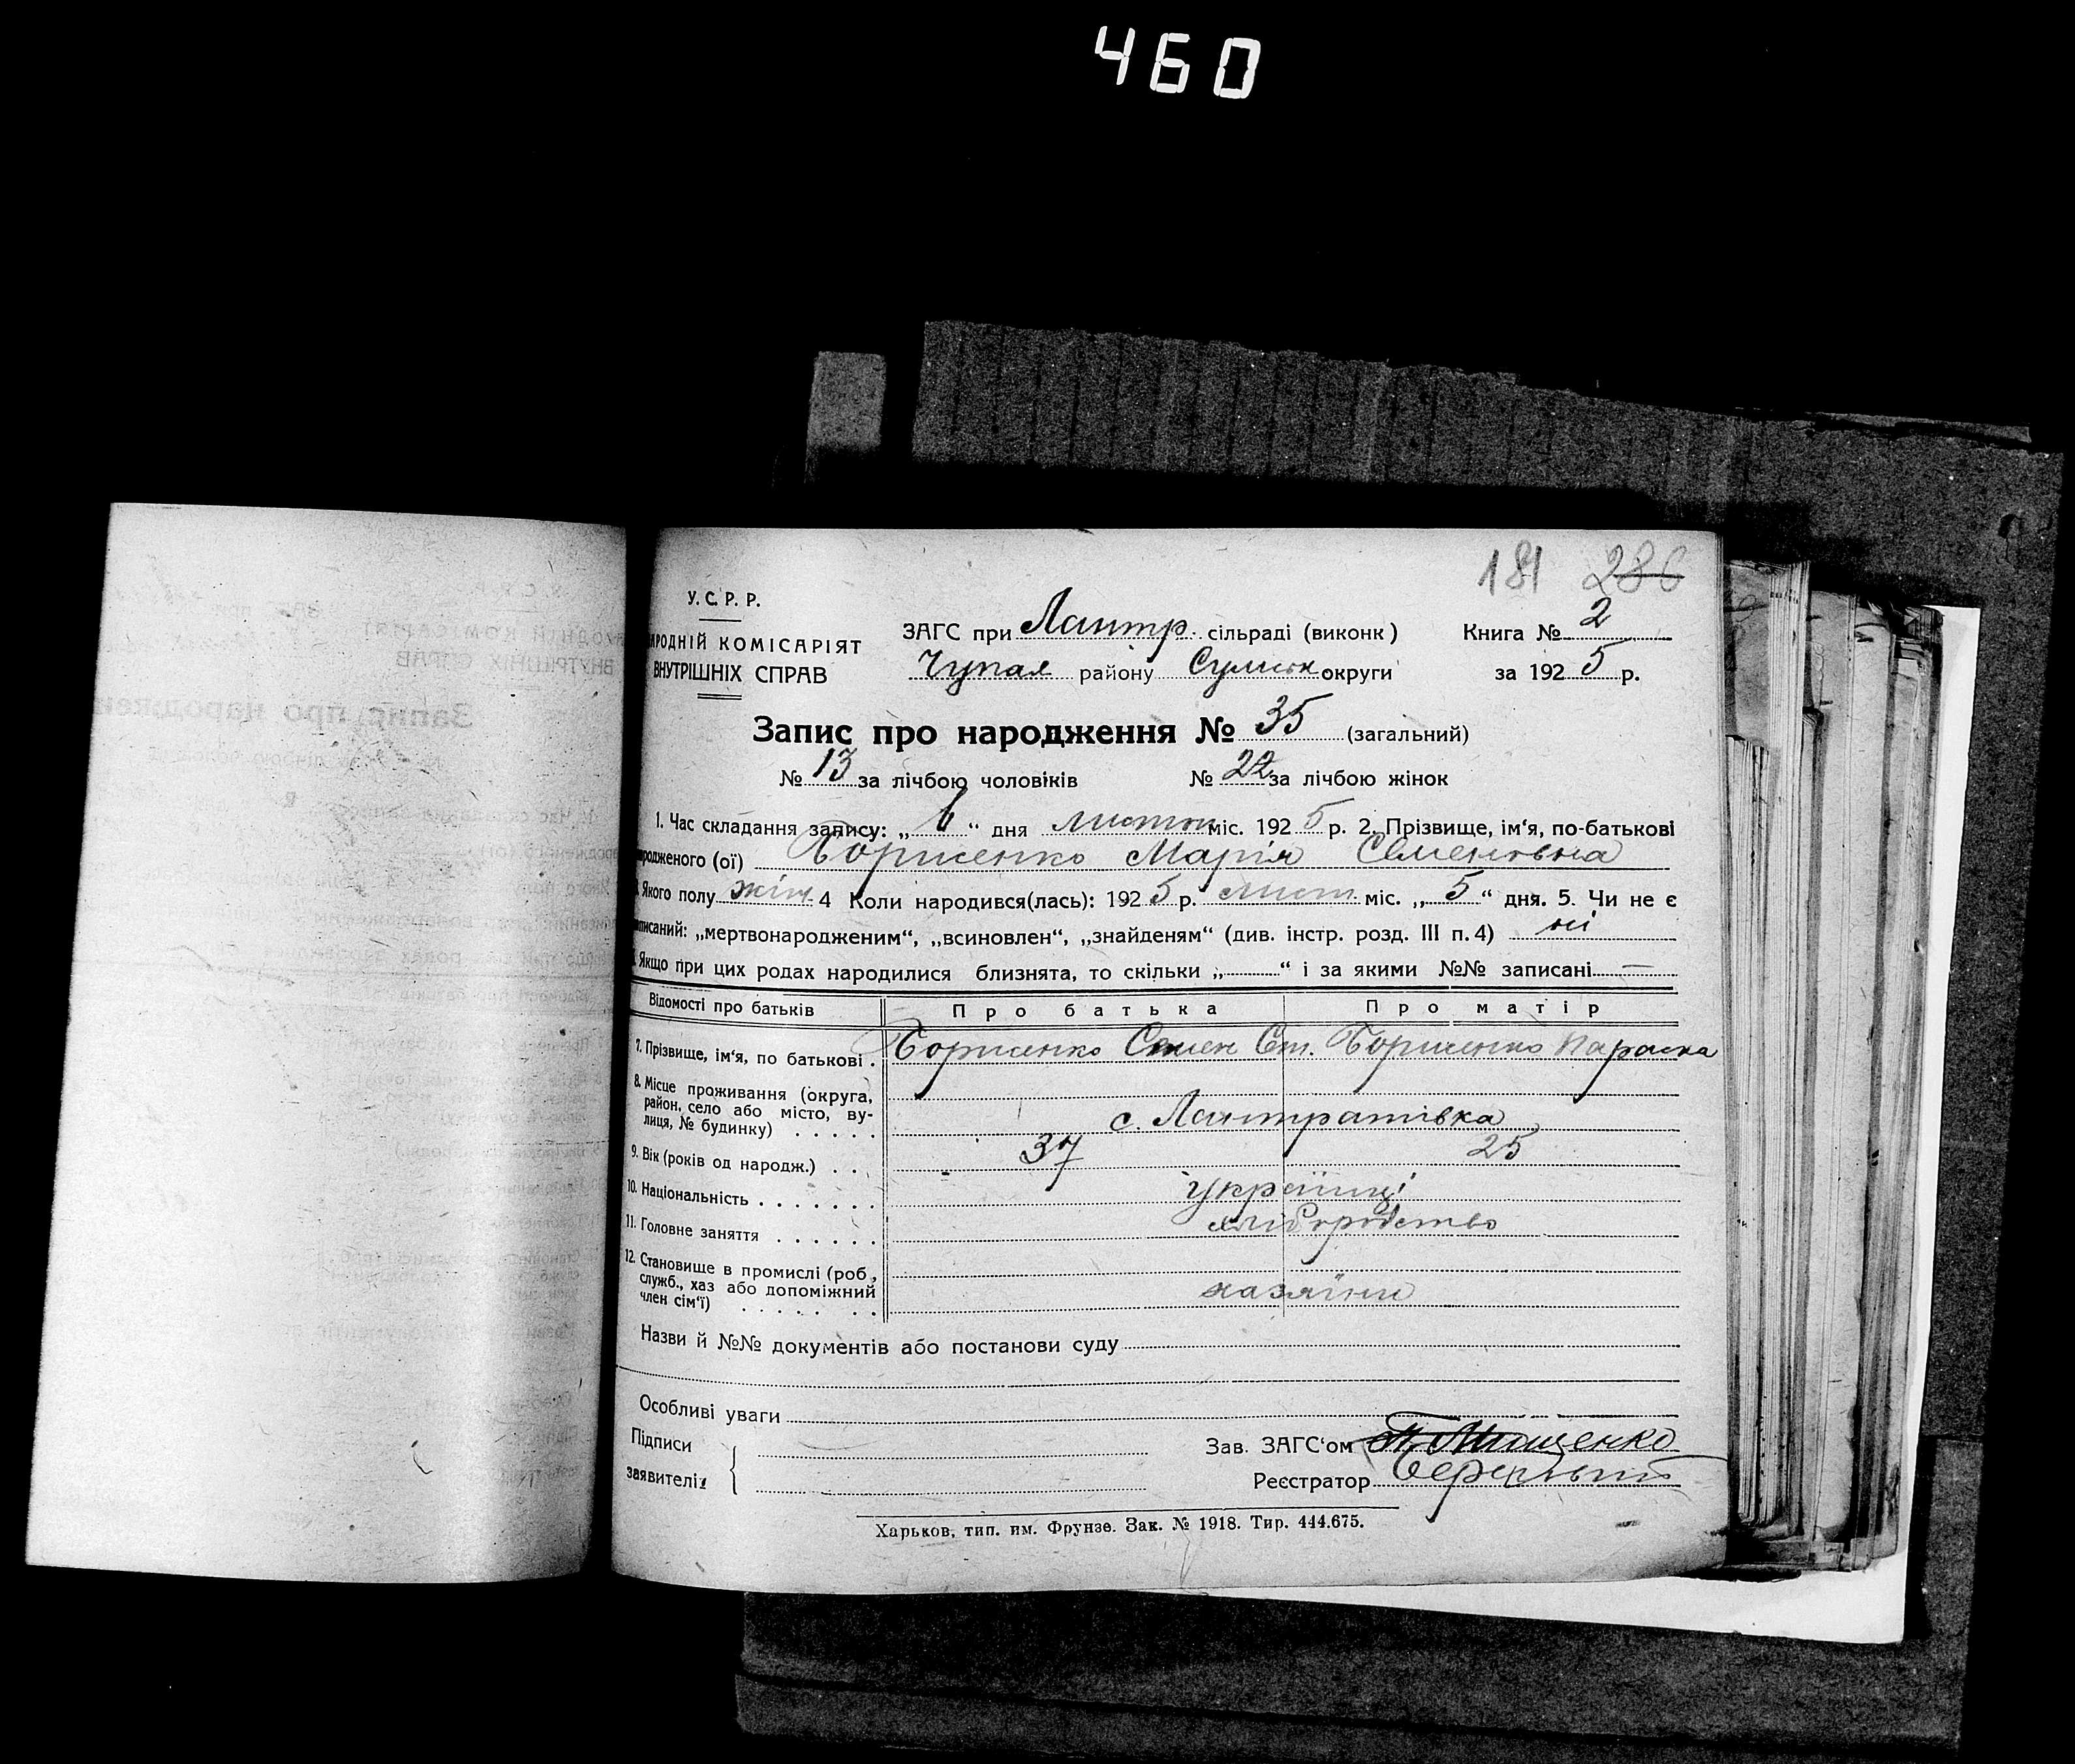 460
181 286
У. С. Р. Р.
АРОДНІЙ КОМІСАРІЯТ
ВНУТРІШНІХ СПРАВ
ЗАГС при Лантр. сільраді (виконк)
Чупах району Сумськ округи
Книга № 2
за 1925 р.
Запис про народження № 35 (загальний)
№ 13 за лічбою чоловіків № 22 за лічбою жінок
1. Час складання запису: „6“ дня листоп міс. 1925 р. 2. Прізвище, ім‘я, по-батькові
родженого (ої) Борисенко Марія Семеновна
Якого полу жін. 4 Коли народився(лась): 1925 р. лист. міс. „5“ дня. 5. Чи не є
писаний: „мертвонародженим“, „всиновлен“, „знайденям“ (див. інстр. розд. III п. 4) ні
Якщо при цих родах народилися близнята, то скільки „ “ і за якими №№ записані —
Відомості про батьків Про батька Про матір
7. Прізвище, ім‘я, по батькові . Борисенко Семен Ст. Борисенко Параска
8. Місце проживання (округа,
район, село або місто, ву-
лиця, № будинку) . . . . . с. Лантратівка
9. Вік (років од народж.) . . . 37 25
10. Національність . . . . . . . українці
11. Головне заняття . . . . . . хліборобство
12. Становище в промислі (роб.,
служб., хаз або допоміжний
член сім‘ї) . . . . . . . хазяїни
Назви й №№ документів або постанови суду
Особливі уваги
Підписи
заявителів
Зав. ЗАГС‘ом
Реєстратор
Харьков, тип. им. Фрунзе. Зак. № 1918. Тир. 444.675.